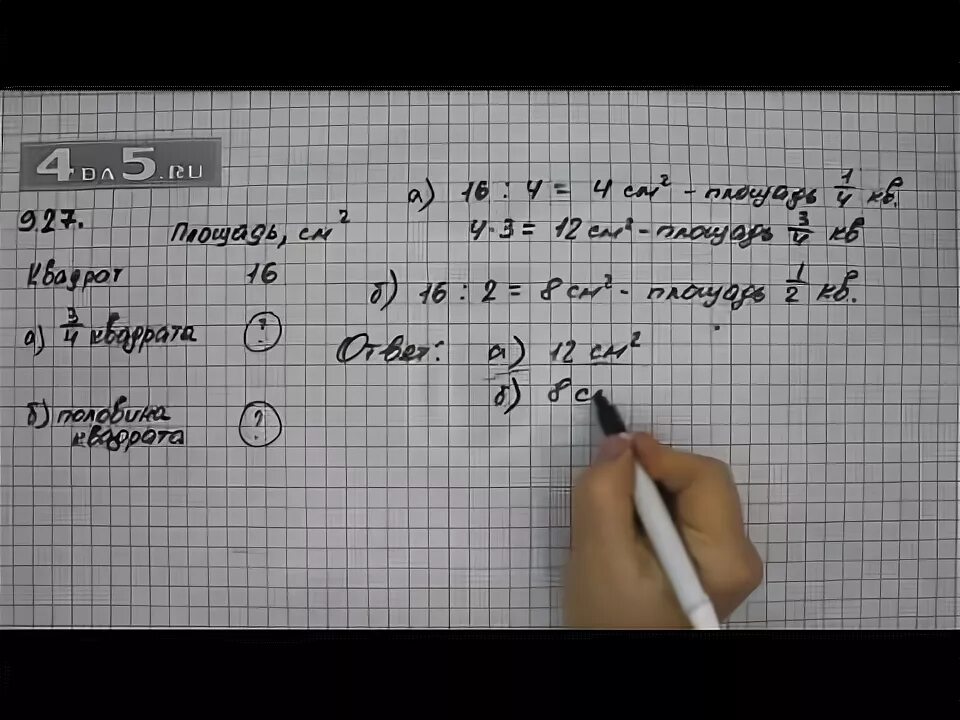 4ВЛ5.RU
927.
Площадь, см²
Квадрат 16
а) 3/4 квадрата ?
б) половина
квадрата ?
а) 16 : 4 = 4 см² - площадь 1/4 кв.
4·3 = 12 см² - площадь 3/4 кв
б) 16 : 2 = 8 см² - площадь 1/2 кв.
Ответ: а) 12 см²
б) 8 см